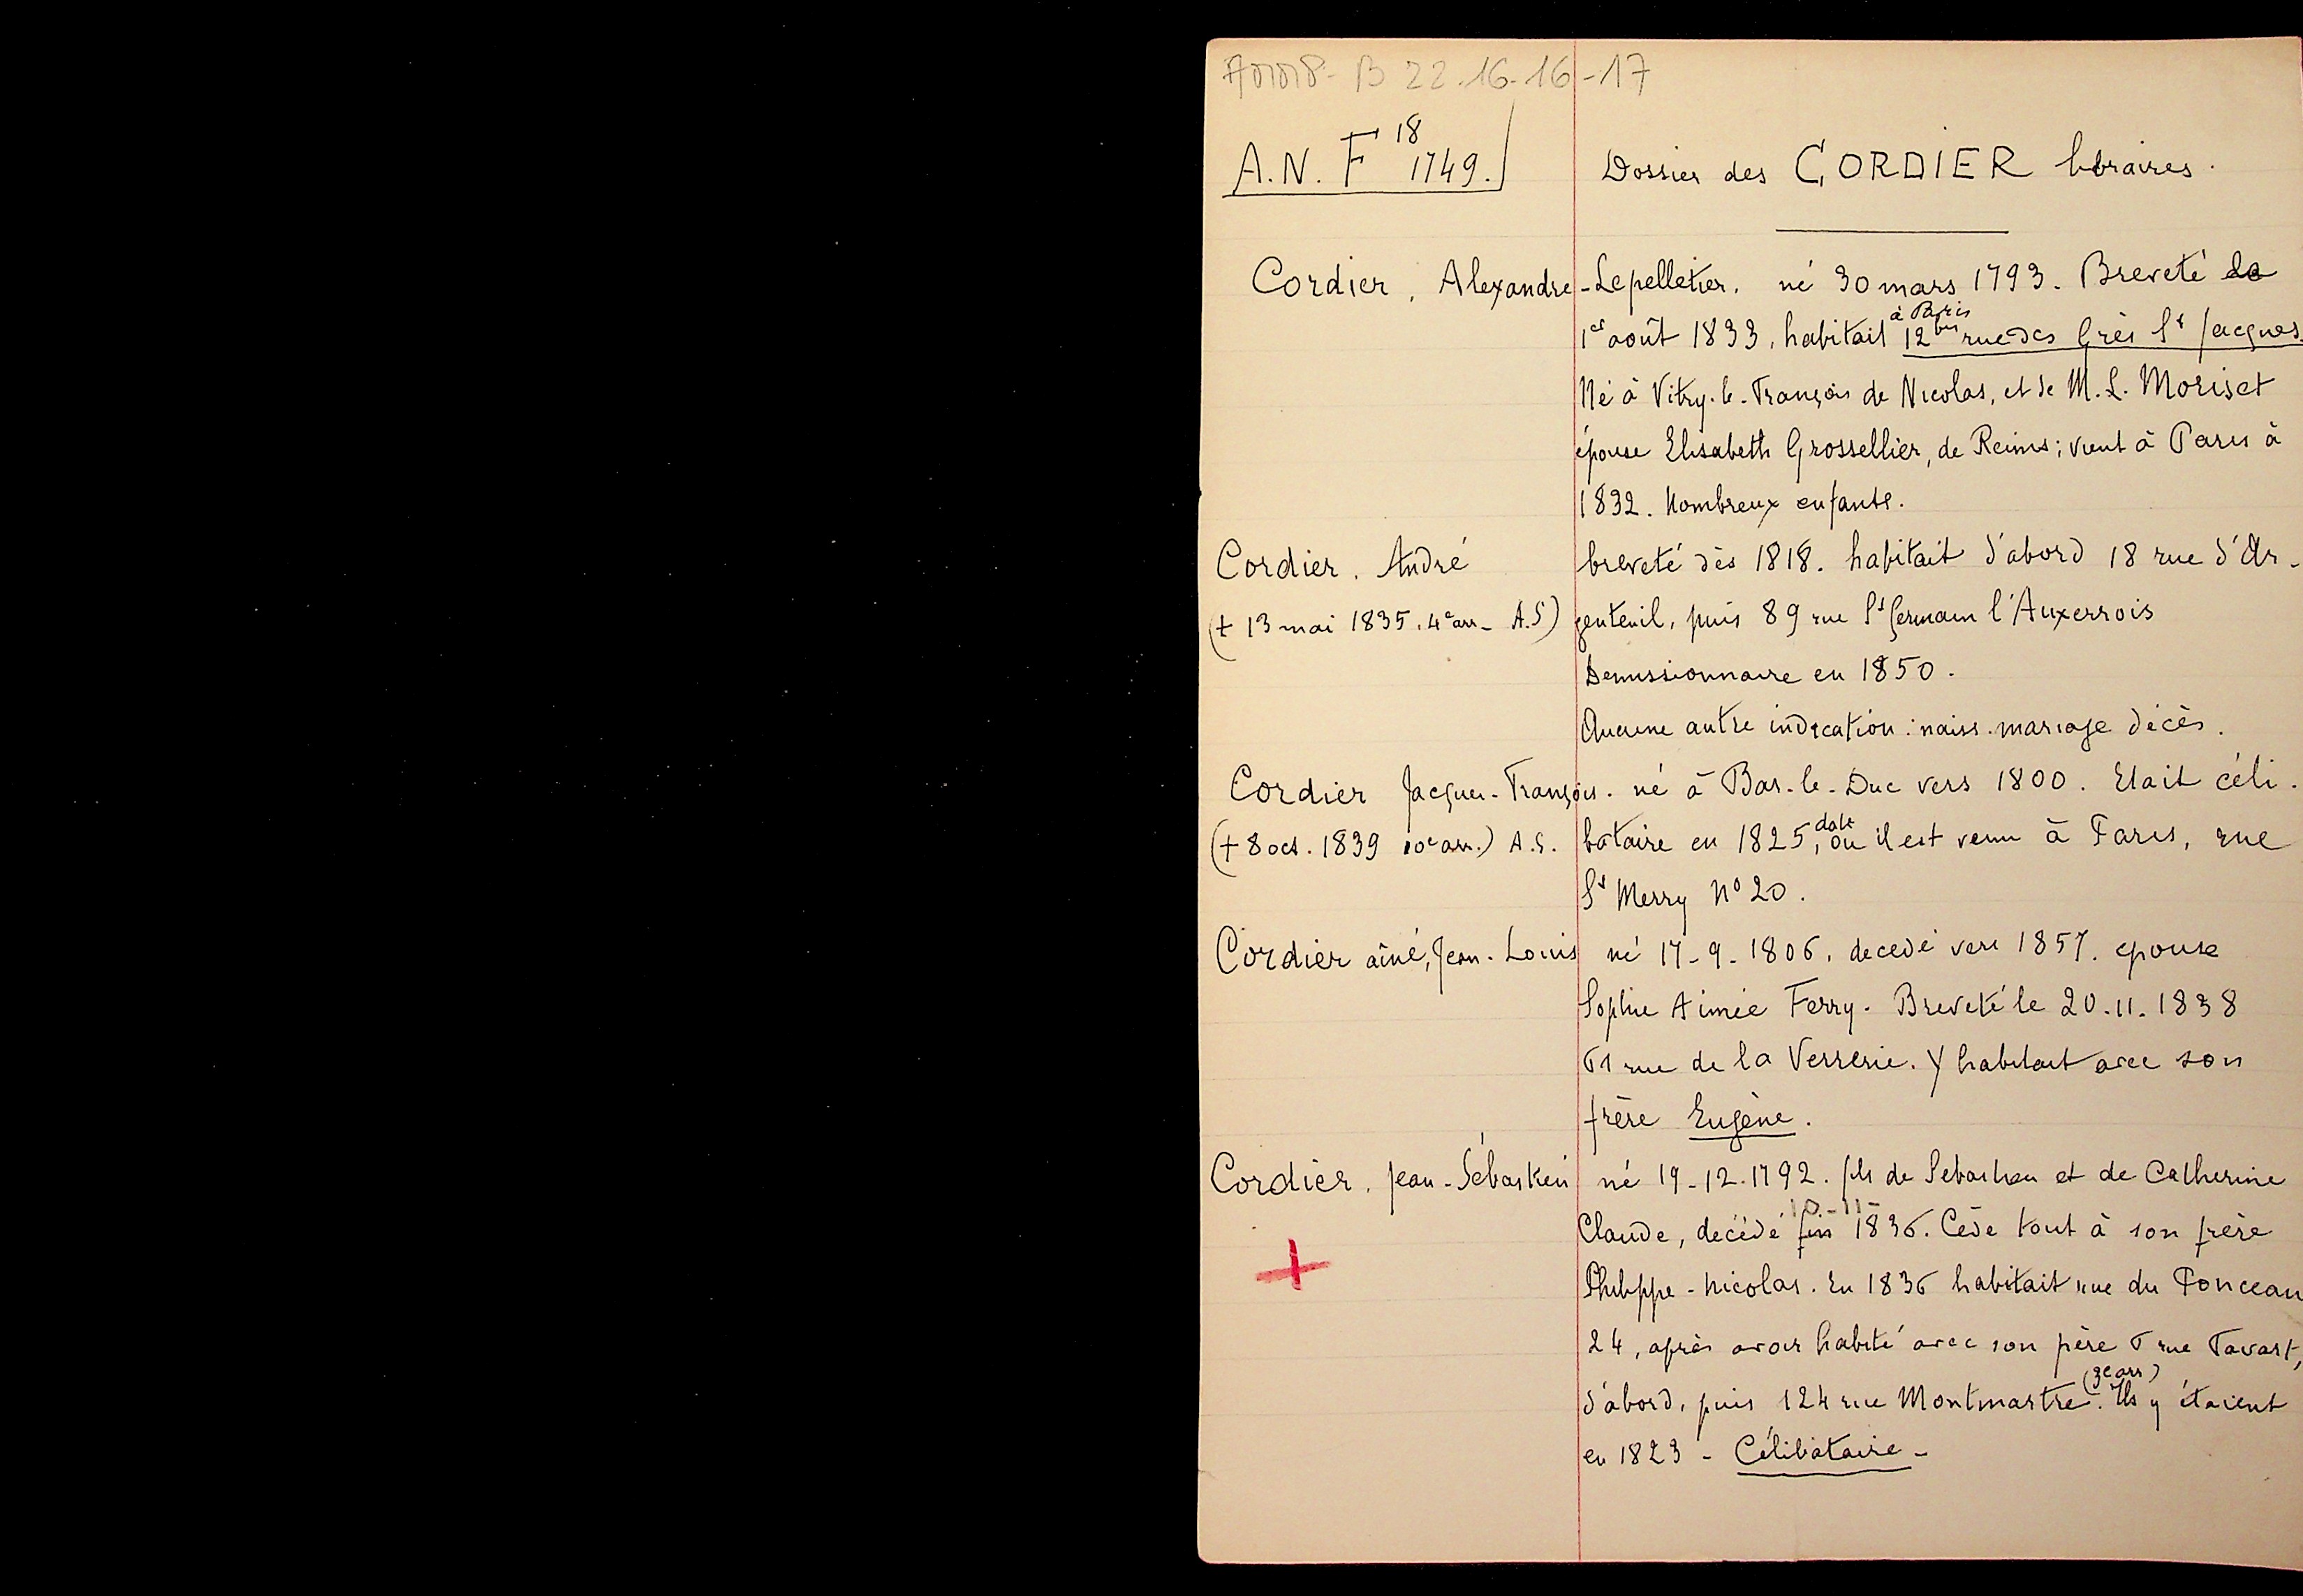 A0708- B 22.16-16-17
A.N. F 18 1749. Dossier des CORDIER libraires.
Cordier, Alexandre-Lepelletier, né 30 mars 1793. Breveté
à Paris
1er août 1833, habitait 12bis rue des Grès St Jacques.
Né à Vitry-le-François de Nicolas, et de M. L. Moriset
épouse Elisabeth Grossellier, de Reims; vient à Paris à
1832. Nombreux enfants.
Cordier. André breveté dès 1818. habitait d'abord 18 rue d'Ar-
(+ 13 mai 1835. 4e arr- A.S) genteuil, puis 89 rue St Germain l'Auxerrois
Demissionnaire en 1850.
Aucune autre indication: naiss. mariage décès.
Cordier Jacques-François. né à Bar-le-Duc vers 1800. Etait céli-
(+ 8 oct. 1839 10e arr.) A.S. bataire en 1825, date où il est venu à Paris, rue
St Merry N° 20.
Cordier aîné, Jean-Louis né 17-9-1806, decedé vers 1857. epouse
Sophie Aimée Ferry. Breveté le 20.11.1838
61 rue de la Verrerie. Y habitait avec son
frère Eugène.
Cordier. Jean-Sébastien né 19-12-1792. fils de Sebastien et de Catherine
10-11-
Claude, décédé fin 1836. Cède tout à son frère
Philippe-Nicolas. En 1836 habitait rue du Ponceau
24, après avoir habité avec son père 6 rue Favart,
d'abord, puis 124 rue Montmartre (3e arr). Ils y étaient
en 1823 - Célibataire -